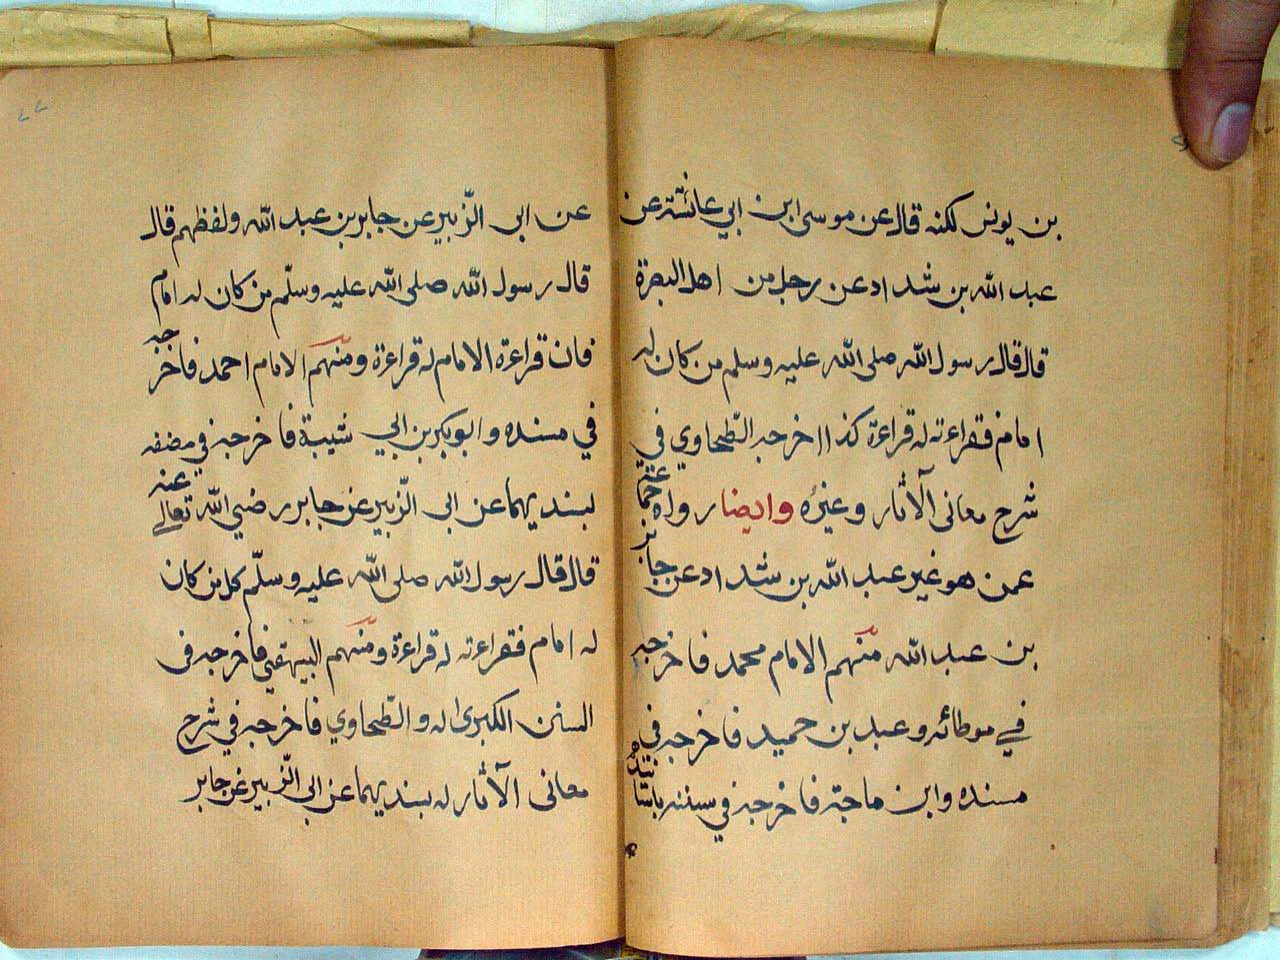 بن يونس لكنه قال عن موسى ابن ابي عائشة عن
عبد الله بن شداد عن رجل من اهل البصرة
قال قال رسول الله صلى الله عليه وسلم من كان له
امام فقراءته له قراءة كذا اخرجه الطّحاوي في
شرح معاني الآثار وغيره وايضا رواه جماعة
عمن هو غير عبد الله بن شداد عن جابر
بن عبد الله منهم الامام محمد فاخرجه
في موطائه وعبد بن حميد فاخرجه في
مسنده وابن ماجة فاخرجه في سننه
٢٢
عن ابى الزّبير عن جابر بن عبد الله ولفظهم قال
قال رسول الله صلى الله عليه وسلّم من كان له امام
فان قراءة الامام له قراءة ومنهم الامام احمد فاخرجه
في مسنده وابوبكر بن ابي شيبة فاخرجه في مصنفه
بسنديهما عن ابى الزّبير عن جابر رضي الله تعالى عنه
قال قال رسول الله صلى الله عليه وسلّم كل من كان
له امام فقراءته له قراءة ومنهم البيهقي فاخرجه فى
السنن الكبرى له والطّحاوي فاخرجه في شرح
معانى الآثار له بسنديهما عن ابى الزّبير عن جابر